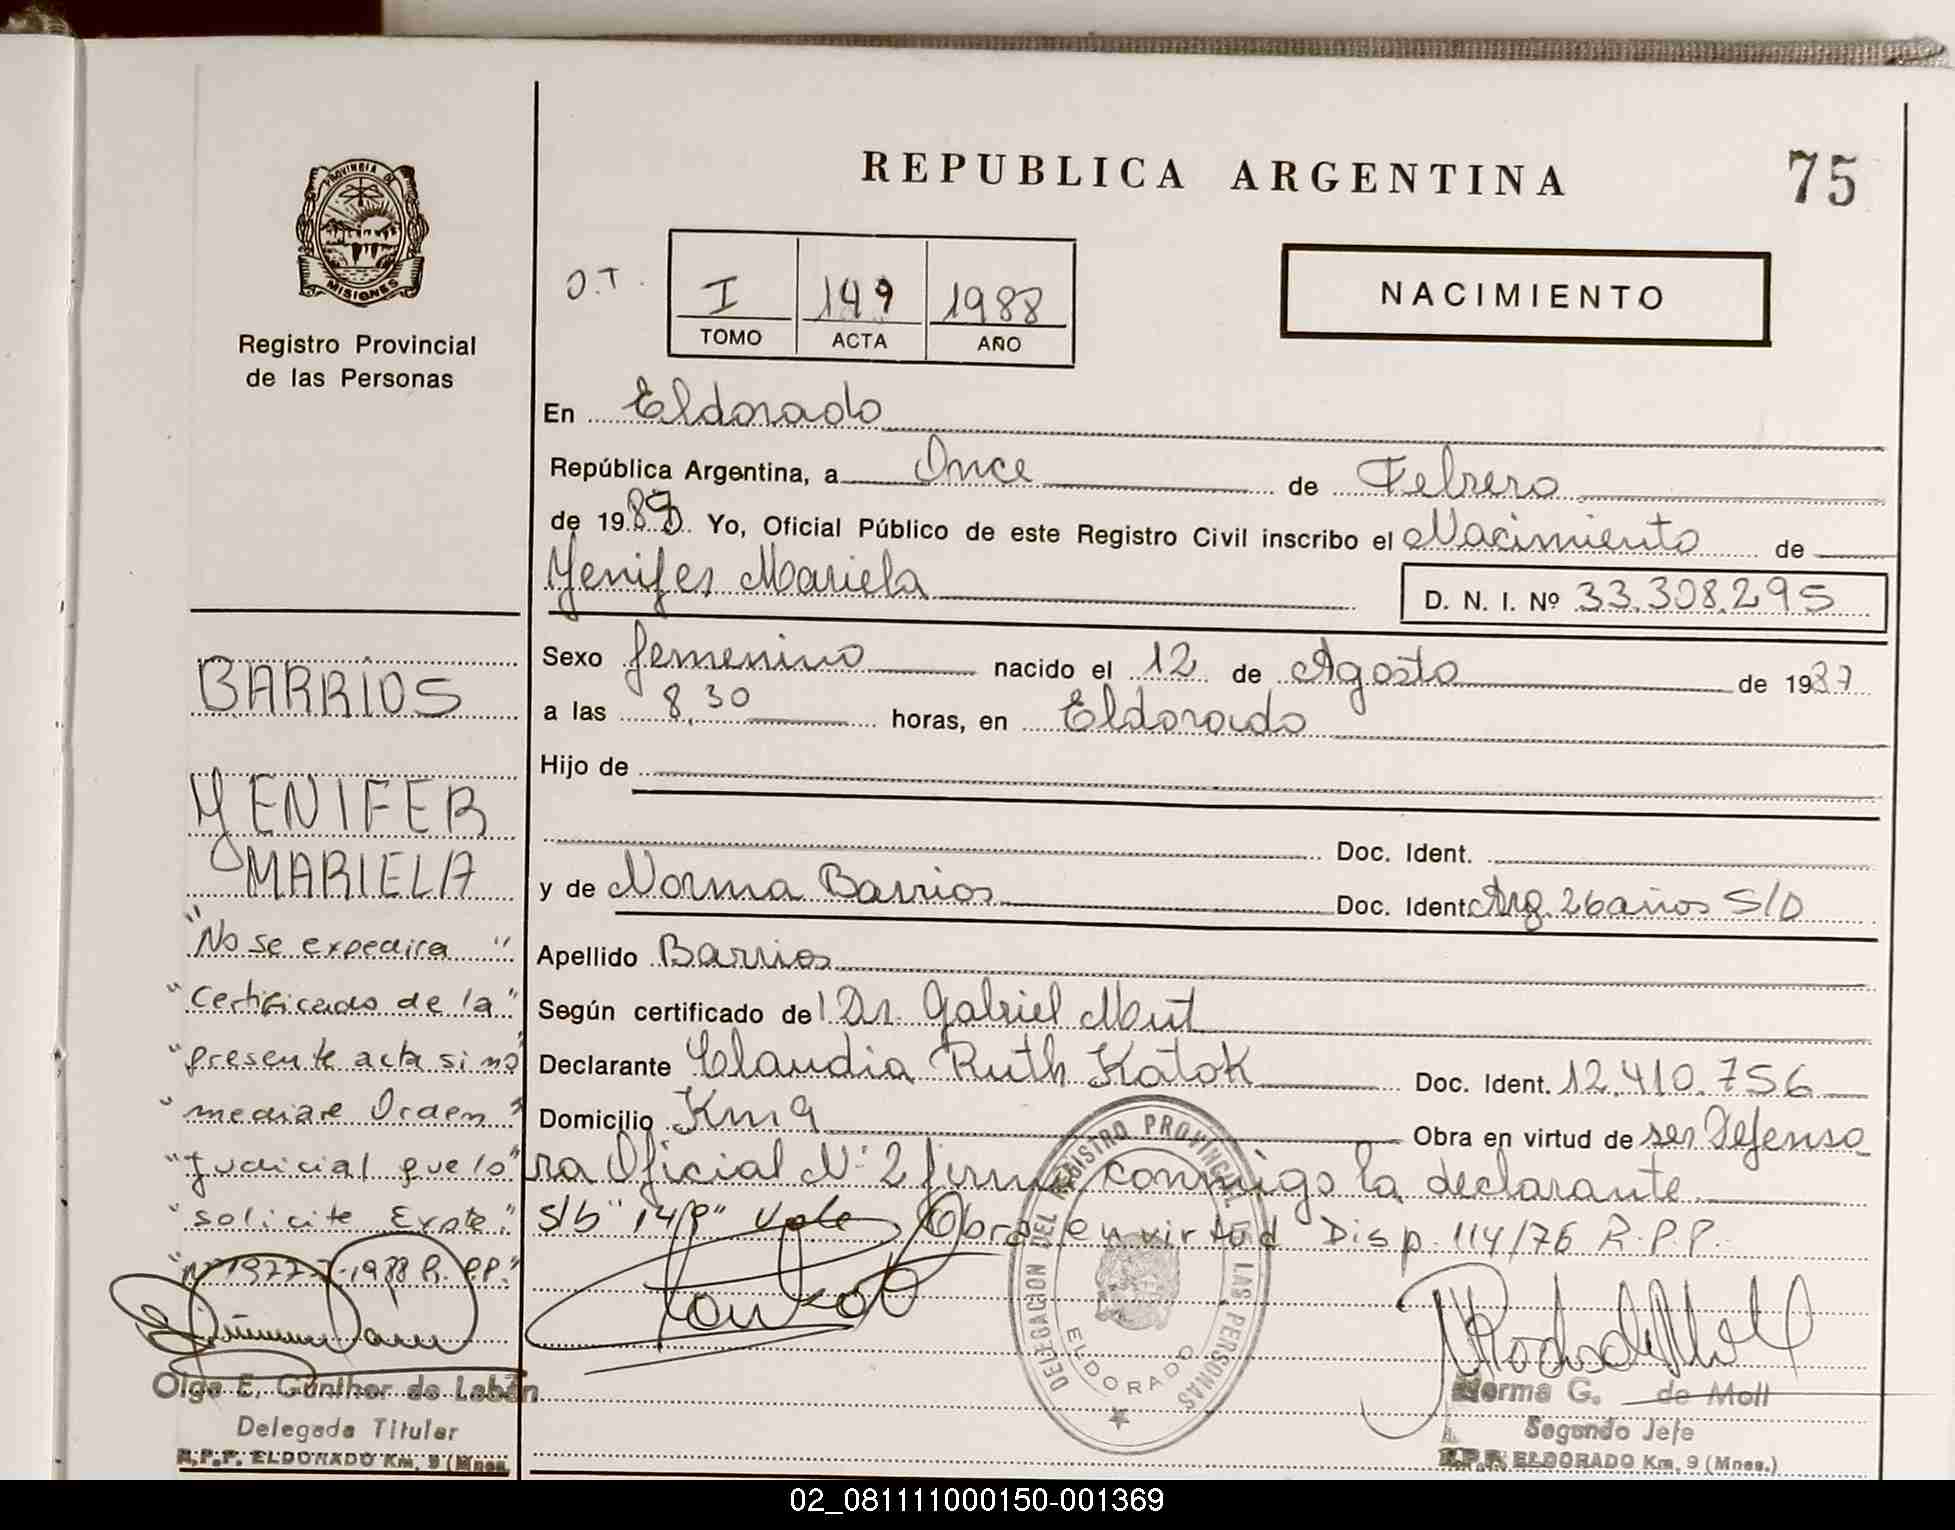 PROVINCIA DE
MISIONES
Registro Provincial
de las Personas
REPUBLICA ARGENTINA
75
O.T.
I 149 1988
TOMO ACTA AÑO
NACIMIENTO
En Eldorado
República Argentina, a Once de Febrero
de 1988 Yo, Oficial Público de este Registro Civil inscribo el Nacimiento de
Yenifer Mariela
D. N. I. Nº 33.308.295
Sexo femenino nacido el 12 de Agosto de 1987
a las 8,30 horas, en Eldorado
Hijo de
Doc. Ident.
y de Norma Barrios Doc. Ident. Arg. 26 años S/D
Apellido Barrios
Según certificado de Dr. Gabriel Mut
Declarante Claudia Ruth Katok Doc. Ident. 12.410.756
Domicilio Km 9 Obra en virtud de ser Defenso
ra Oficial Nº 2 firma conmigo la declarante
s/b "149" Vale Obra en virtud Disp. 114/76 R.P.P.
BARRIOS
YENIFER
MARIELA
"No se expedira"
"Certificado de la"
"presente acta si no
"mediare Orden"
"Judicial que lo"
"solicite Expte."
"Nº 1977-J-1988 R.P.P."
Olga E. Günther de Labán
Delegada Titular
R.P.P. ELDORADO Km. 9 (Mnes.
DELEGACION DEL REGISTRO PROVINCIAL DE LAS PERSONAS
ELDORADO
Norma G. de Moll
Segundo Jefe
R.P.P. ELDORADO Km. 9 (Mnes.)
02_081111000150-001369